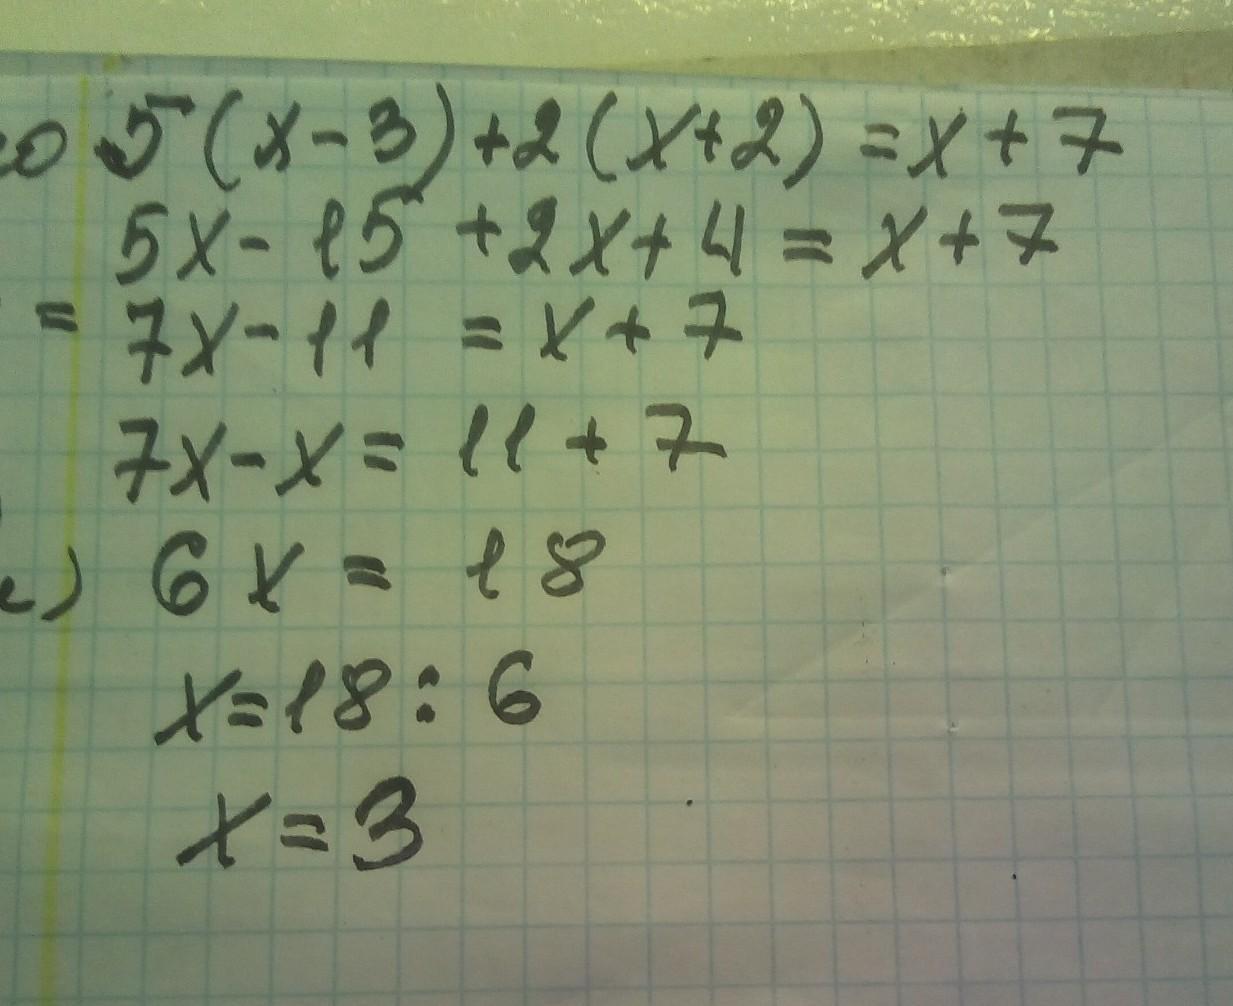 5(x-3)+2(x+2)=x+7
5x-15+2x+4=x+7
= 7x-11=x+7
7x-x=11+7
6x=18
x=18:6
x=3